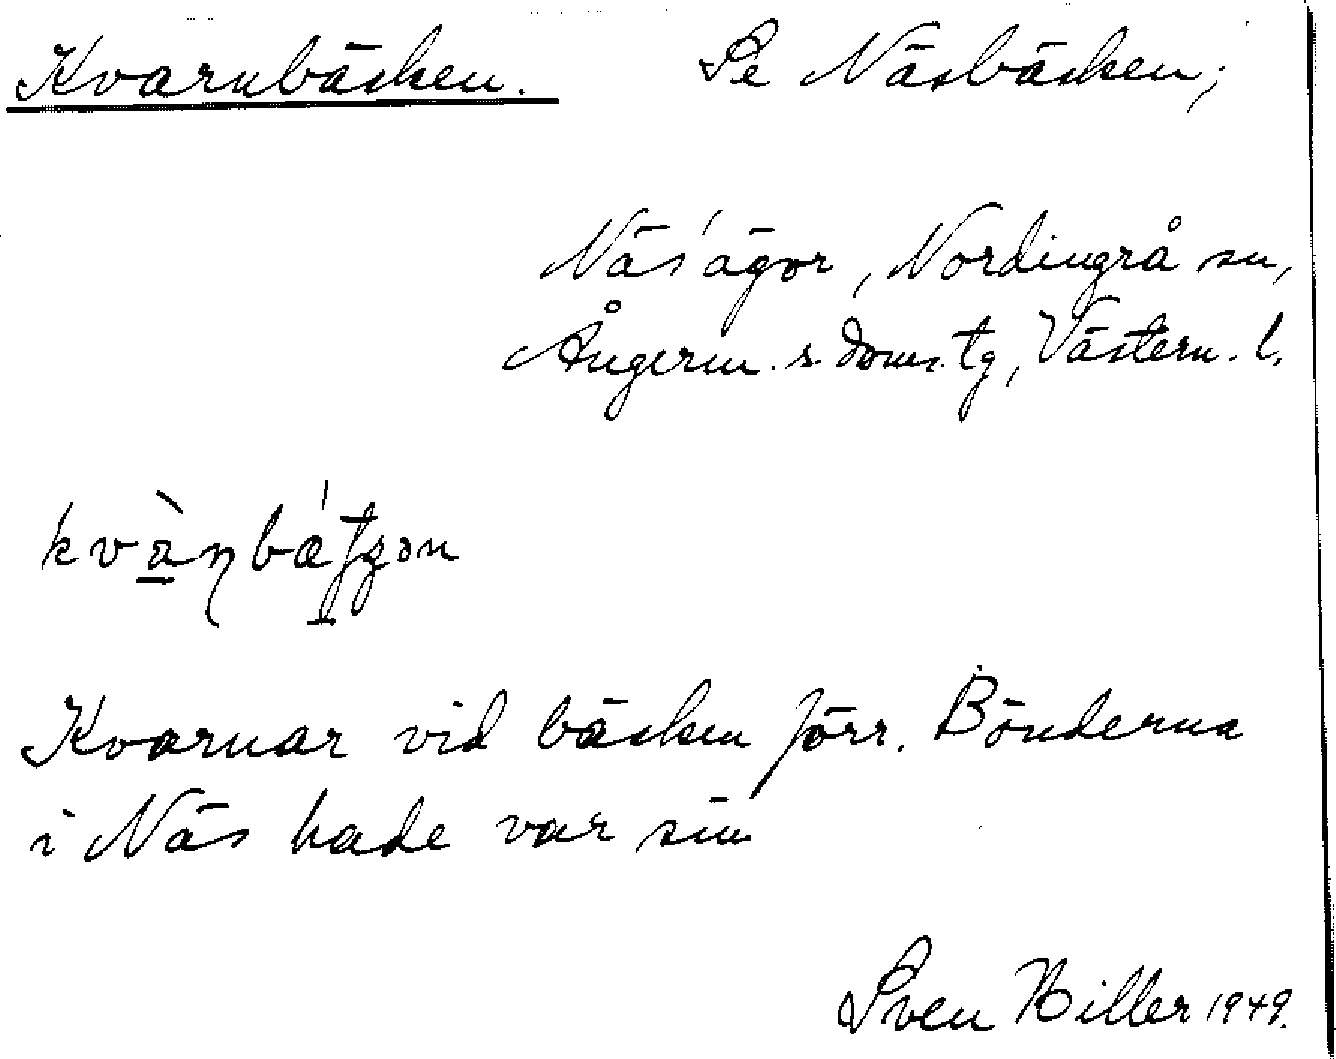 Kvarnbäcken. Se Näsbäcken;
Näs' ägor, Nordingrå sn,
Ångerm. s. doms. tg, Västern. l.
Kvarnar vid bäcken förr. Bönderna
i Näs hade var sin
Sven Hiller 1949.